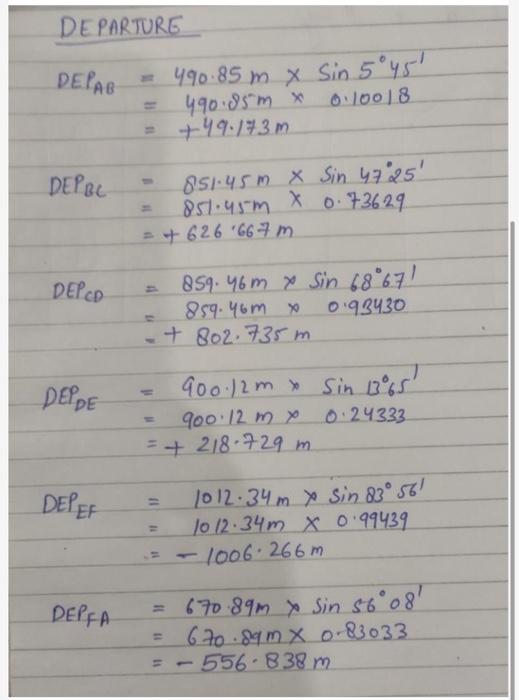 DEPARTURE
DEP AB = 490.85 m × Sin 5°45'
= 490.85m × 0.10018
= +49.173m
DEP BC = 851.45m × Sin 47°25'
= 851.45m × 0.73629
= + 626.667 m
DEP CD = 859.46m × Sin 68°67'
= 859.46m × 0.93430
= + 802.735 m
DEP DE = 900.12m × Sin 13°65'
= 900.12 m × 0.24333
= + 218.729 m
DEP EF = 1012.34m × Sin 83°56'
= 1012.34m × 0.99439
= - 1006.266m
DEP FA = 670.89m × Sin 56°08'
= 670.89m × 0.83033
= - 556.838m